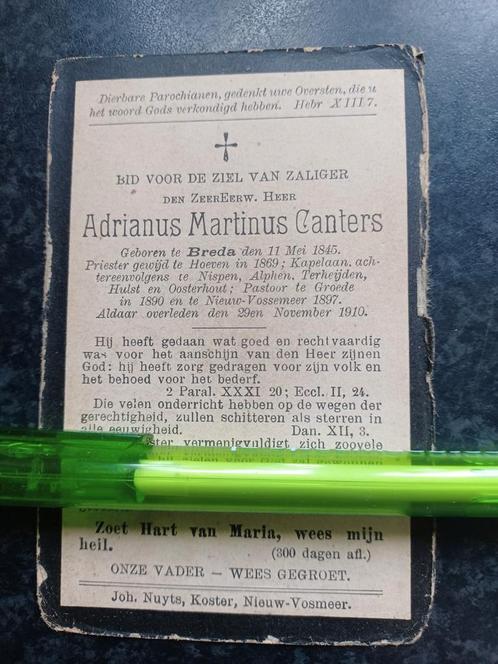 Dierbare Parochianen, gedenkt uwe Oversten, die u
het woord Gods verkondigd hebben. Hebr XIII 7.
BID VOOR DE ZIEL VAN ZALIGER
DEN ZEEREERW. HEER
Adrianus Martinus Canters
Geboren te Breda den 11 Mei 1845.
Priester gewijd te Hoeven in 1869; Kapelaan, ach-
tereenvolgens te Nispen, Alphen, Terheijden,
Hulst en Oosterhout; Pastoor te Groede
in 1890 en te Nieuw-Vossemeer 1897.
Aldaar overleden den 29en November 1910.
Hij heeft gedaan wat goed en rechtvaardig
was voor het aanschijn van den Heer zijnen
God: hij heeft zorg gedragen voor zijn volk en
het behoed voor het bederf.
2 Paral. XXXI 20; Eccl. II, 24.
Die velen onderricht hebben op de wegen der
gerechtigheid, zullen schitteren als sterren in
alle eeuwigheid. Dan. XII, 3.
vermenigvuldigt zich zoovele
Zoet Hart van Maria, wees mijn
heil. (300 dagen afl.)
ONZE VADER — WEES GEGROET.
Joh. Nuyts, Koster, Nieuw-Vosmeer.